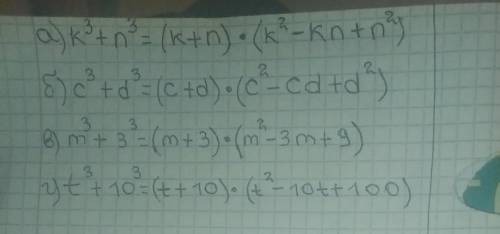 а) k³+n³=(k+n)·(k²-kn+n²)
б) c³+d³=(c+d)·(c²-cd+d²)
в) m³+3³=(m+3)·(m²-3m+9)
г) t³+10³=(t+10)·(t²-10t+100)